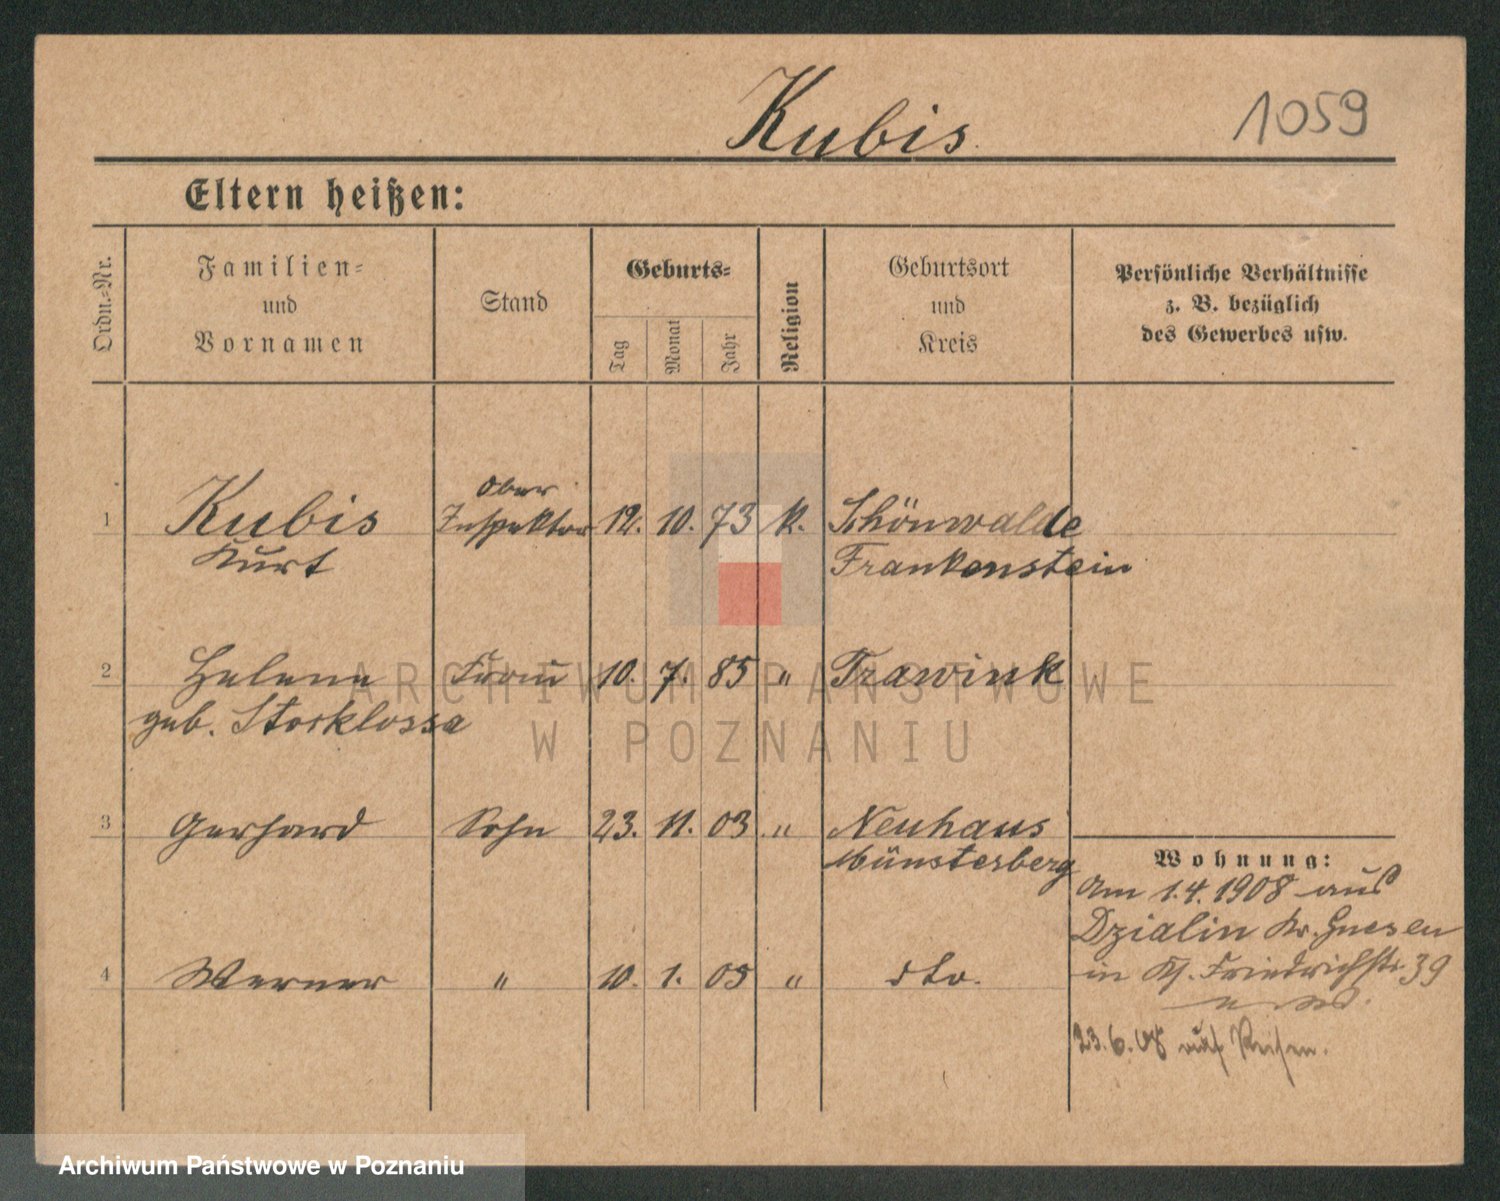 Kubis.
1059
Eltern heißen:
Ordn.-Nr.
Familien-
und
Vornamen
Stand
Geburts-
Tag
Monat
Jahr
Religion
Geburtsort
und
Kreis
Persönliche Verhältnisse
z. B. bezüglich
des Gewerbes usw.
Ober
1 Kubis Inspektor 12. 10. 73 k. Schönwalde
Kurt Frankenstein
2 Helene Frau 10. 7. 85 " Trawink
geb. Storklossa
3 Gerhard Sohn 23. 11. 03 " Neuhaus
Münsterberg
4 Werner " 10. 1. 05 " dto.
Wohnung:
Am 1.4.1908 aus
Dzialin Kr. Gnesen
in Friedrichstr. 39
23.6.08 auf Reisen.
ARCHIWUM PAŃSTWOWE
W POZNANIU
Archiwum Państwowe w Poznaniu